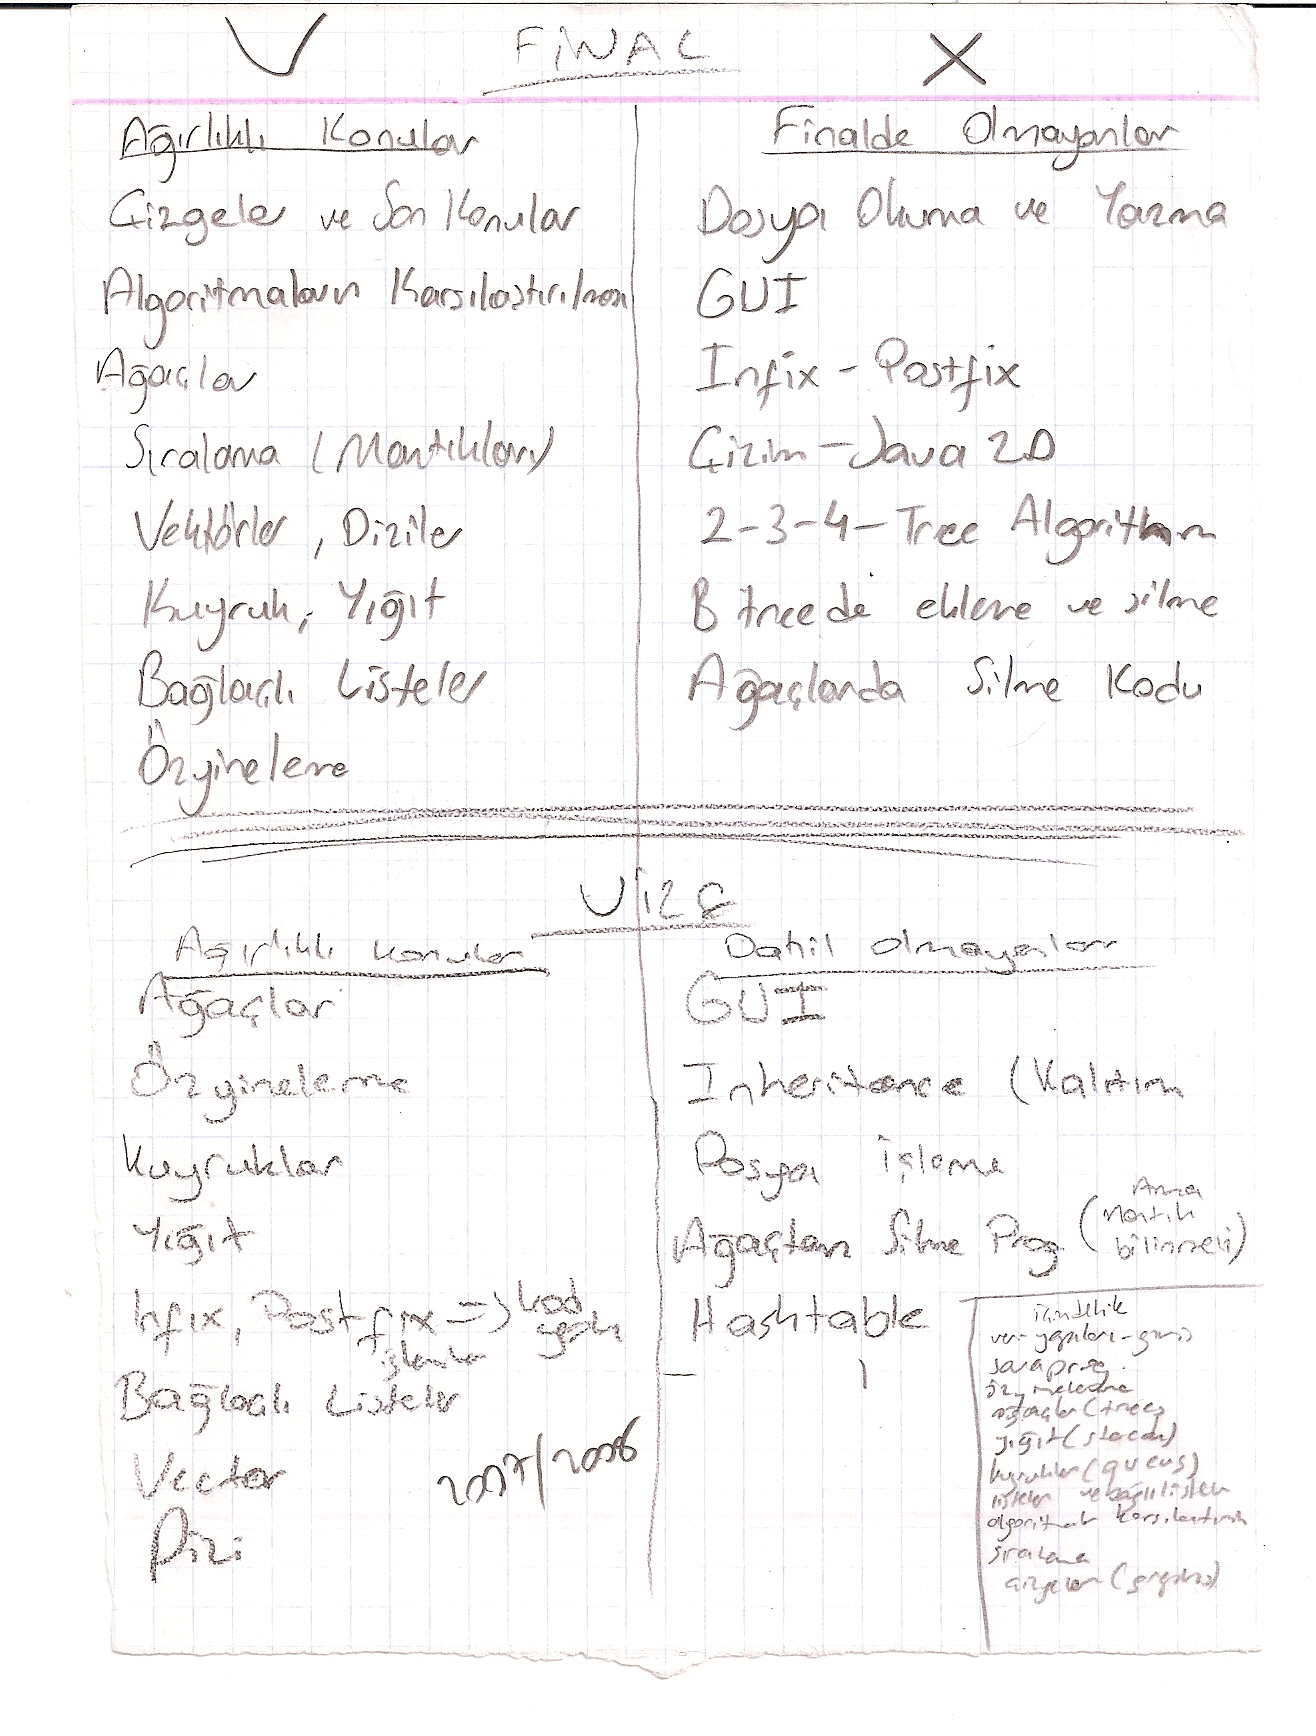 FİNAL
Ağırlıklı Konular
Çizgeler ve Son Konular
Algoritmaların Karşılaştırılması
Ağaçlar
Sıralama (Mantıkları)
Vektörler, Diziler
Kuyruk, Yığıt
Bağlaçlı Listeler
Özyineleme
Finalde Olmayanlar
Dosya Okuma ve Yazma
GUI
Infix - Postfix
Çizim - Java 2D
2-3-4-Tree Algorithm
B treede ekleme ve silme
Ağaçlarda Silme Kodu
VİZE
Ağırlıklı Konular
Ağaçlar
Özyineleme
Kuyruklar
Yığıt
Infix, Postfix => kod
işlemler yok
Bağlaçlı Listeler
Vector
Dizi
2007/2008
Dahil Olmayanlar
GUI
Inheritance (Kalıtım
Dosya İşleme
Ağaçtan Silme Prog (Ama Mantık bilinmeli)
Hashtable
içindelik
veri yapıları-giriş
java prog.
özyineleme
ağaçlar (tree)
yığıt (stack)
kuyruklar (queue)
listeler ve bağlı listeler
algoritmalar karşılaştırma
sıralama
çizgeler (graphs)